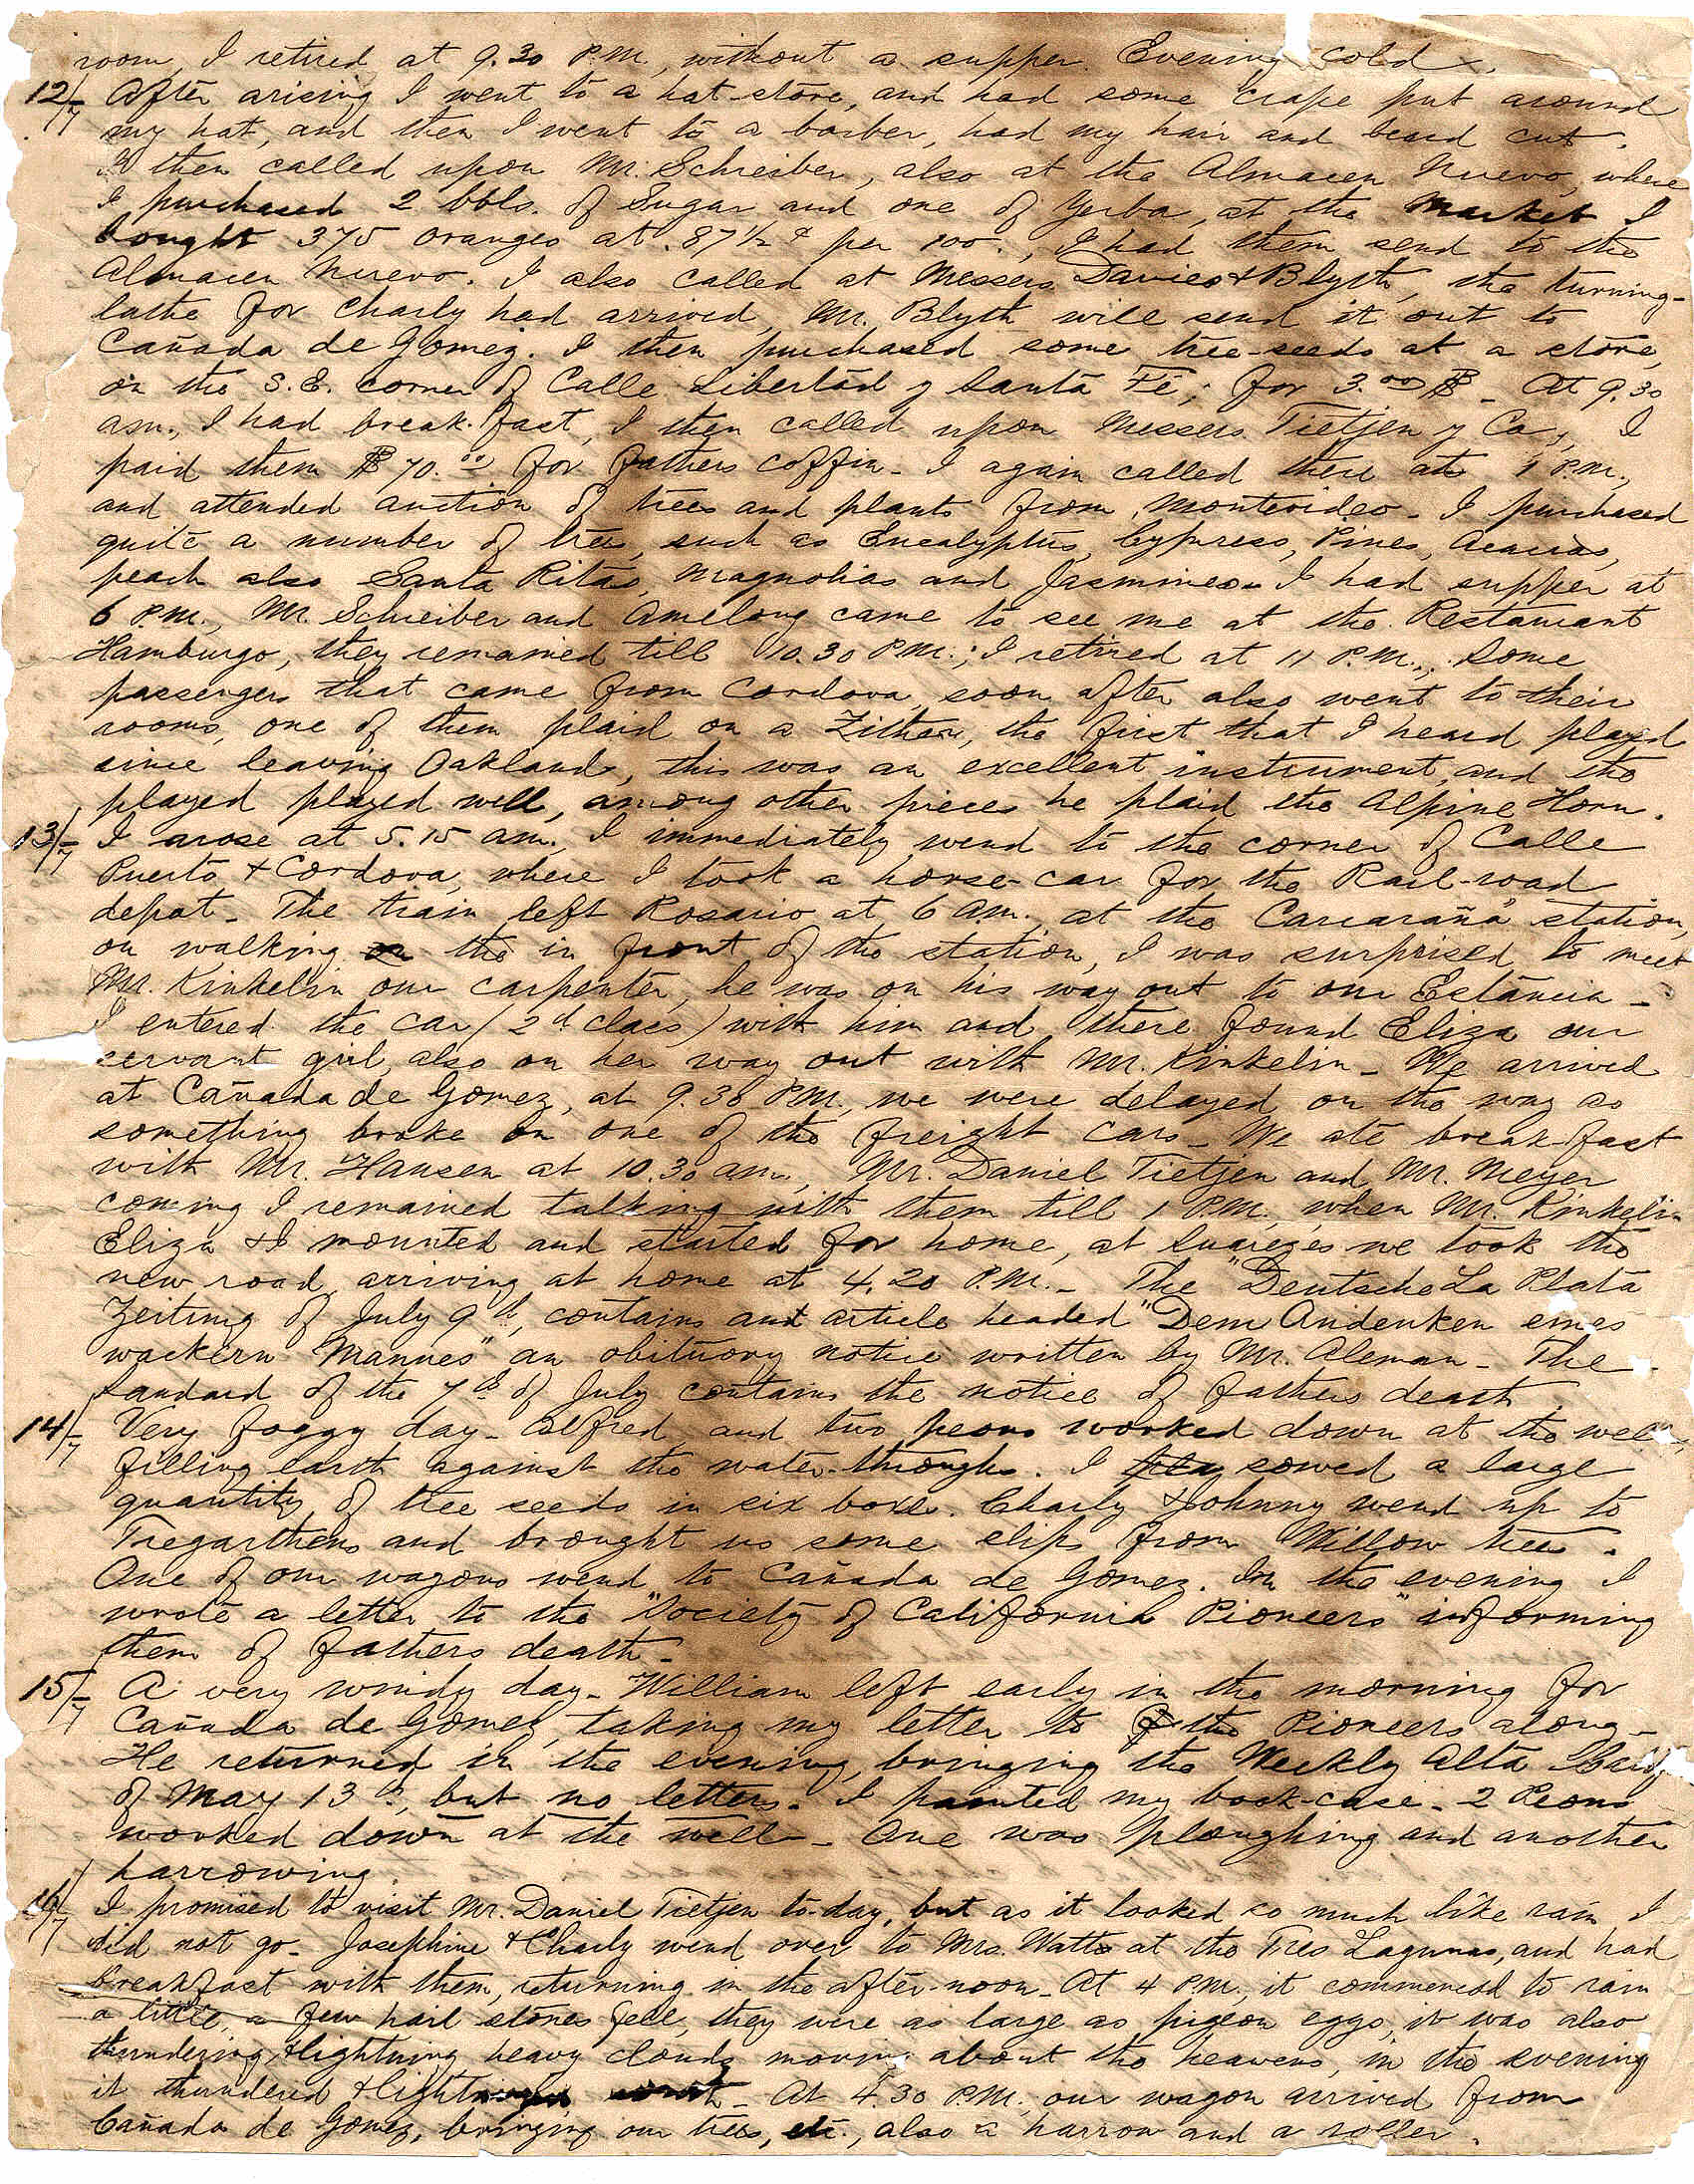 room, I retired at 9.30 P.M., without a supper. Evening cold.
12/7 After arising I went to a hat-store, and had some crape put around
my hat, and then I went to a barber, had my hair and beard cut.
I then called upon Mr. Schreiber, also at the Almacen Nuevo, where
I purchased 2 bbls. of Sugar and one of Yerba, at the market I
bought 375 oranges at .87½ ¢ per 100., I had them send to the
Almacen Nuevo. I also called at Messers Davies & Blyth, the turning-
lathe for Charly had arrived, Mr. Blyth will send it out to
Cañada de Gomez. I then purchased some tree-seeds at a store,
on the S.E. corner of Calle Libertád y Santa Fé, for 3.00 $ - At 9.30
am., I had break-fast, I then called upon Messers Tietjen y Ca., I
paid them $ 70.00 for fathers coffin - I again called there at 1 P.M.,
and attended auction of trees and plants from Montevideo - I purchased
quite a number of trees, such as Eucalyptus, Cypress, Pines, Acacias,
peach also Santa Ritas, Magnolias and Jasmines - I had supper at
6 P.M., Mr. Schreiber and Amelong came to see me at the Restaurant
Hamburgo, they remained till 10.30 P.M.; I retired at 11 P.M., some
passengers that came from Cordova, soon after also went to their
rooms, one of them plaid on a Zither, the first that I heard played
since leaving Oakland, this was an excellent instrument, and the
played played well, among other pieces he plaid the Alpine Horn.
13/7 I arose at 5.15 am., I immediately wend to the corner of Calle
Puerto & Cordova, where I took a horse-car for the Rail-road
depot - The train left Rosario at 6 am., at the Carcaraña station,
on walking the in front of the station, I was surprised to meet
Mr. Kinkelin our carpenter, he was on his way out to our Estáncia -
I entered the car (2d class) with him and there found Eliza our
servant girl, also on her way out with Mr. Kinkelin - We arrived
at Cañada de Gomez, at 9.38 P.M., we were delayed on the way as
something broke on one of the freight cars - We ate break-fast
with Mr. Hansen at 10.30 am., Mr. Daniel Tietjen and Mr. Meyer
coming I remained talking with them till 1 P.M., when Mr. Kinkelin
Eliza & I mounted and started for home, at Suarezes we took the
new road, arriving at home at 4.20 P.M. - The "Deutsche La Plata
Zeitung of July 9th, contains and article headed "Dem Andenken eines
wackern Mannes" an obituory notice written by Mr. Aleman - The
Sandard of the 7th of July contains the notice of fathers death
14/7 Very foggy day - Alfred and two peons worked down at the well,
filling earth against the water-throughs. I sowed a large
quantity of tree seeds in six boxes. Charly & Johnny wend up to
Tregarthens and brought us some slips from Willow trees.
One of our wagons wend to Cañada de Gomez. In the evening I
wrote a letter to the "Society of California Pioneers" informing
them of fathers death -
15/7 A very windy day - William left early in the morning for
Cañada de Gomez, taking my letter to the Pioneers along -
He returned in the evening, bringing the Weekly Alta
of May 13th, but no letters - I painted my book-case - 2 Peons
worked down at the well - One was ploughing and another
harrowing.
16/7 I promised to visit Mr. Daniel Tietjen to-day, but as it looked so much like rain, I
did not go - Josephine & Charly wend over to Mrs. Watts at the Tres Lagunas, and had
breakfast with them, returning in the after-noon - At 4 P.M., it commenced to rain
a little, a few hail stones fell, they were as large as pigeon eggs, it was also
thundering & lightning, heavy clouds moving about the heavens, in the evening
it thundered & - At 4.30 P.M., our wagon arrived from
Cañada de Gomez, bringing our trees, etc., also a harrow and a roller.